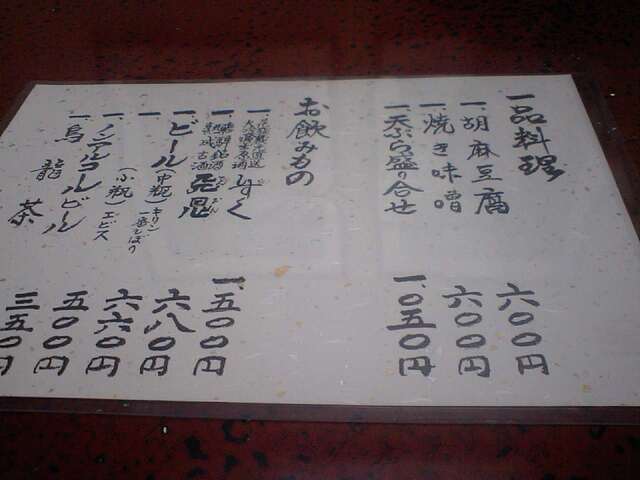 一品料理
一、胡麻豆腐 六〇〇円
一、焼き味噌 六〇〇円
一、天ぷら盛り合せ 一、〇五〇円
お飲みもの
一、しずく
一、
一、五〇〇円
一、ビール(中瓶)キリン一番しぼり 六八〇円
(小瓶)エビス 六六〇円
一、ノンアルコールビール 五〇〇円
一、烏龍茶 三五〇円